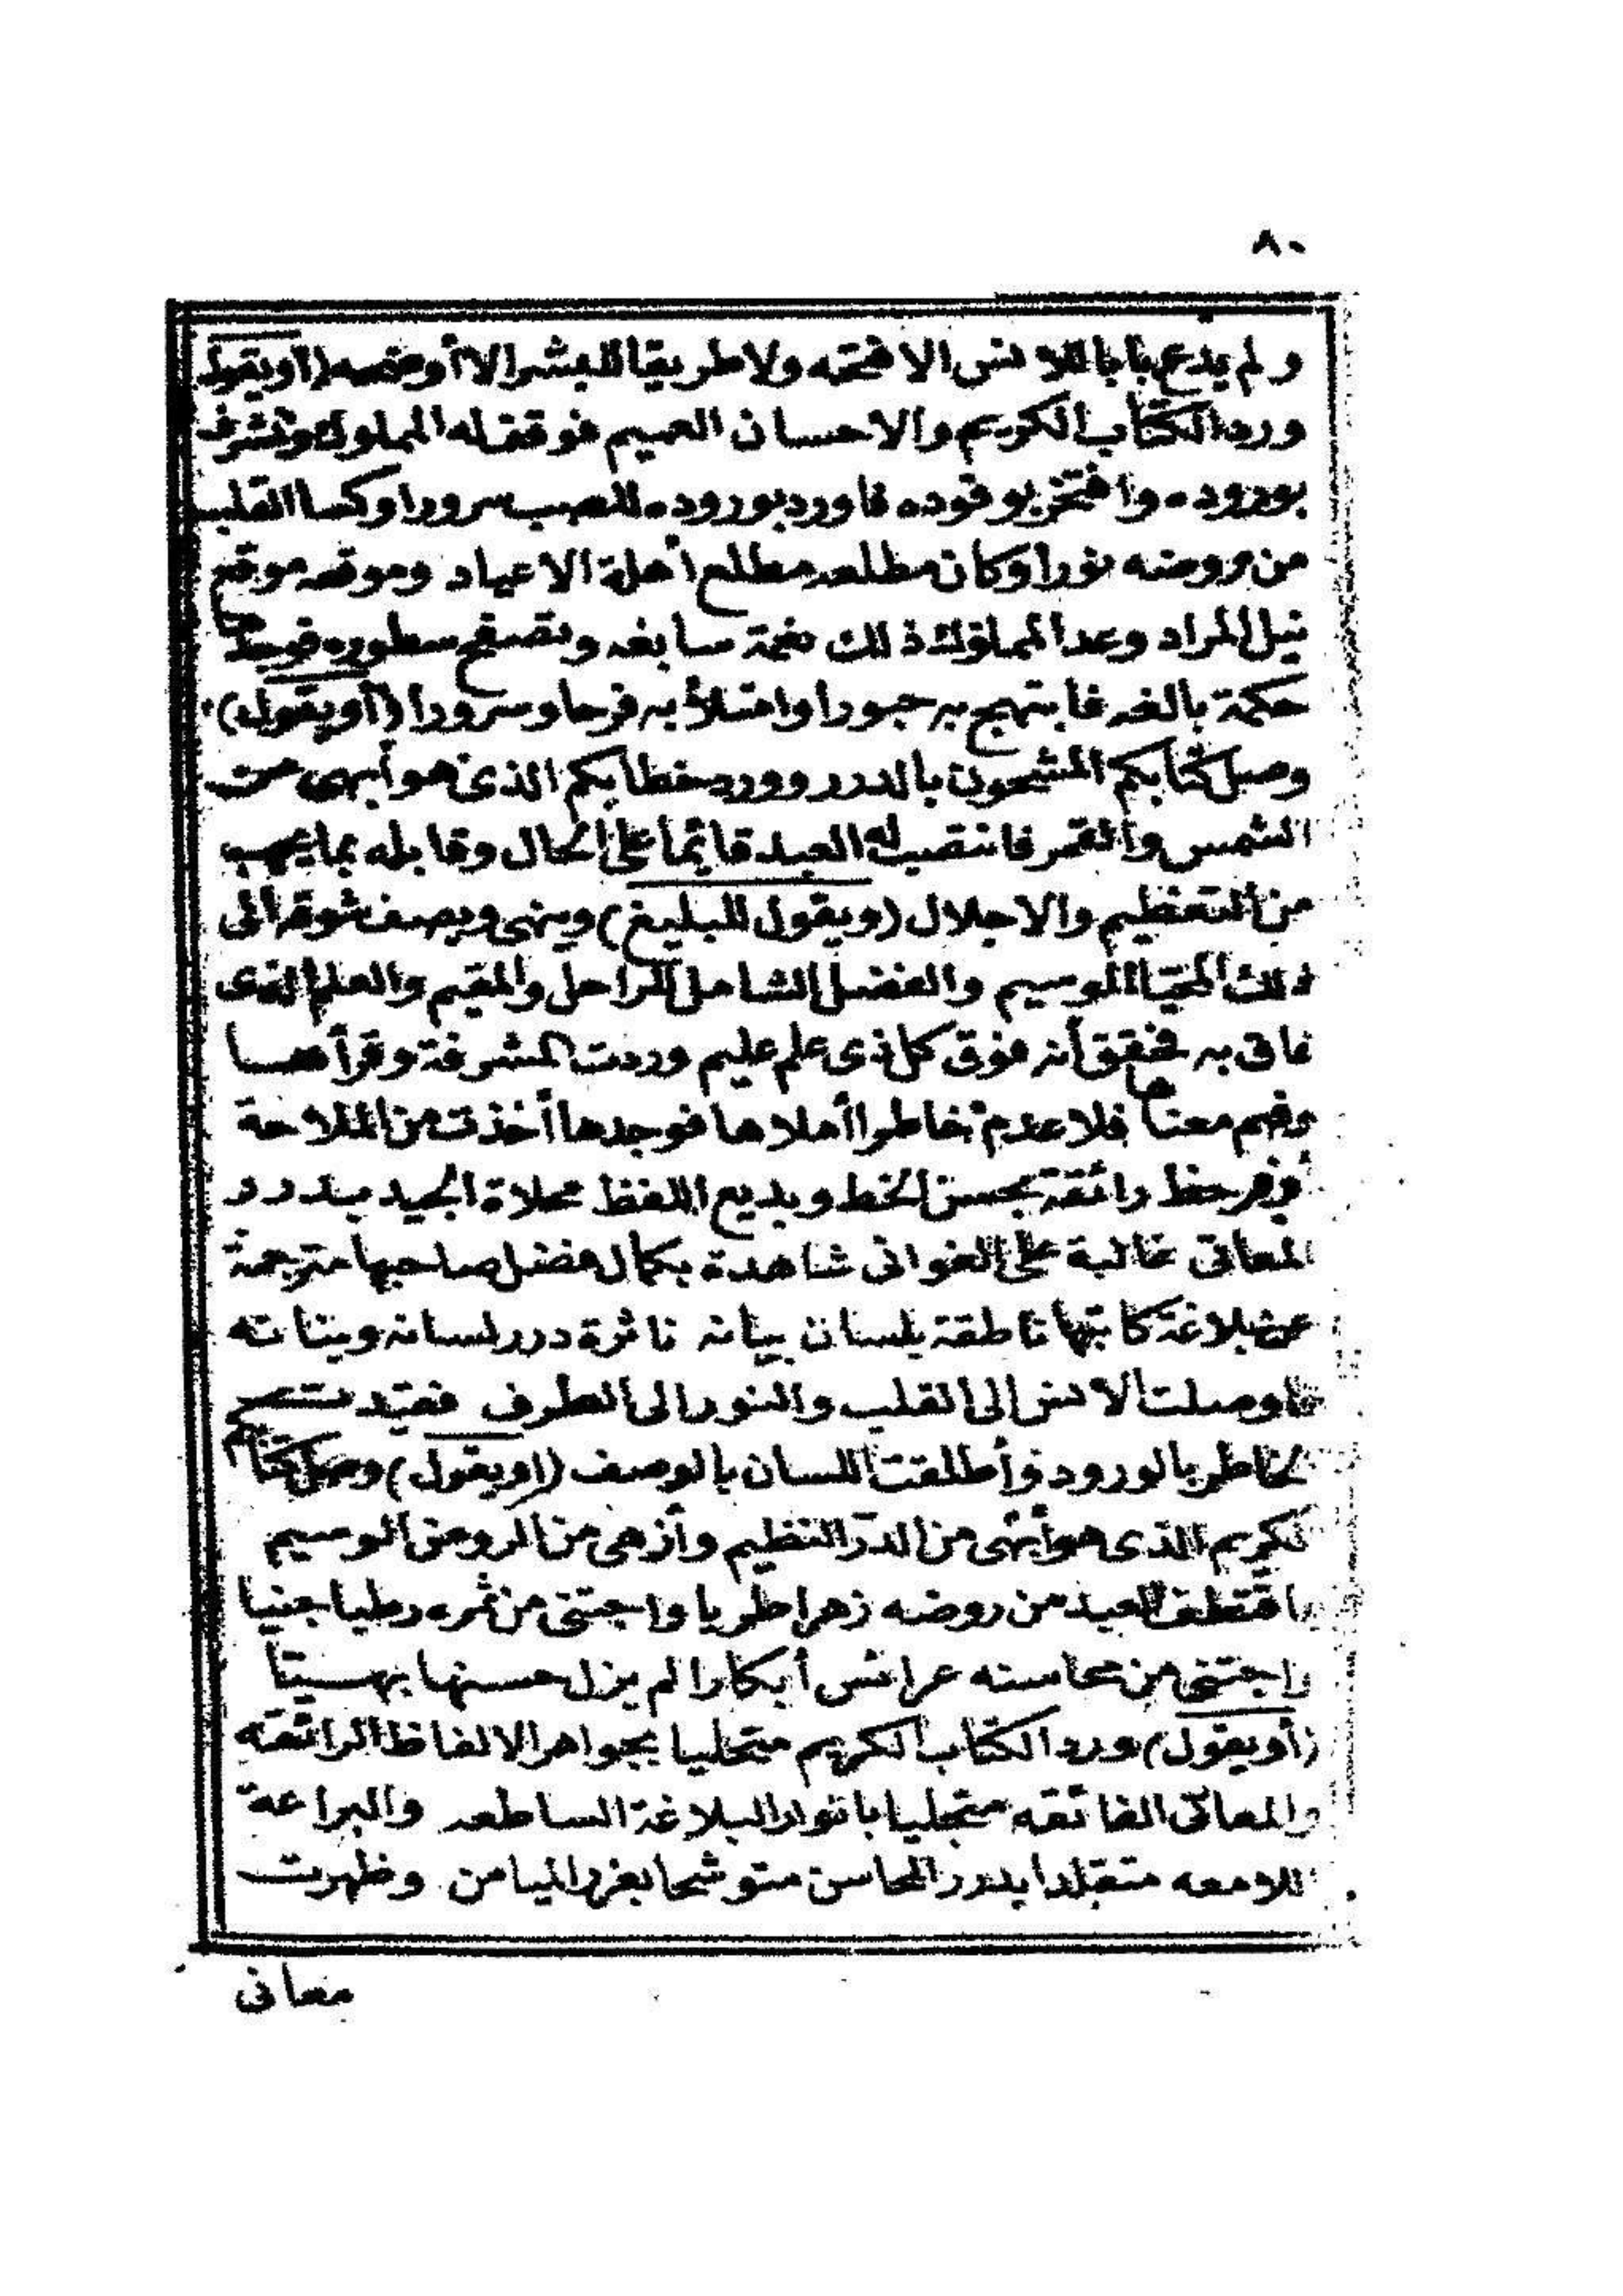 ٨٠
ولم يدع بابا للانس الا فتحه ولا طريقا للبشر الا أوضحه (أو يقول
ورد الكتاب الكريم والاحسان العميم فوقف له المملوك وتشرف
بوروده وافتخر بوفوده فاورد بوروده للصب سرورا وكسا القلب
من روضه نورا وكان مطلعه مطلع أهلة الاعياد وموقعه موقع
نيل المراد وعد المملوك ذلك نعمة سابغه وتصفح سطوره فوجد
حكمة بالغه فابتهج به حبورا وامتلأ به فرحا وسرورا (أو يقول)
وصل كتابكم المشحون بالدرر وورد خطابكم الذى هو أبهى من
الشمس والقمر فانتصب له العبد قائما على الحال وقابله بما يجب
من التعظيم والاجلال (ويقول للبليغ) وينهى ويصف شوقه الى
ذلك المحيا الوسيم والفضل الشامل للراحل والمقيم والعلم الذى
فاق به فتحقق أنه فوق كل ذى علم عليم وردت المشرفة وقرأها
وفهم معناها فلا عدم خاطرا أملاها فوجدها أخذت من الملاحة
أوفر حظ رائقة بحسن الخط وبديع اللفظ محلاة الجيد بدرر
المعانى غالبة على الغوانى شاهدة بكمال فضل صاحبها مترجمة
عن بلاغة كاتبها ناطقة بلسان بيانه ناثرة درر لسانه وبنانه
فاوصلت الانس الى القلب والنور الى الطرف فقيدت
الخاطر بالورود وأطلقت اللسان بالوصف (او يقول) وصل كتابكم
الكريم الذى هو أبهى من الدر النظيم وأزهى من الروض الوسيم
فاقتطف العبد من روضه زهرا طريا واجتنى من ثمره رطبا جنيا
واجتنى من محاسنه عرائس أبكارا لم يزل حسنها بهيا
(أو يقول) ورد الكتاب الكريم متحليا بجواهر الالفاظ الرائقه
والمعانى الفائقه متجليا بانوار البلاغة الساطعه والبراعة
اللامعه متقلدا بدرر المحاسن متوشحا بغرر الميامن وظهرت
معانى